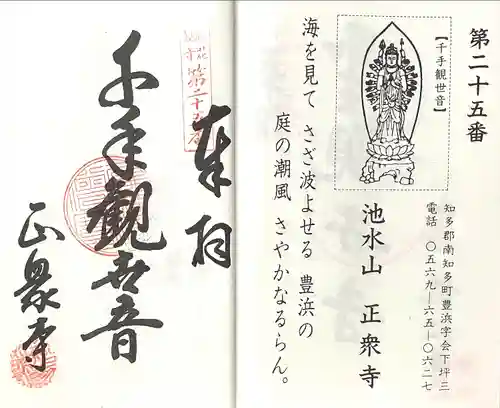 第二十五番
【千手観世音】
知多郡南知多町豊浜字会下坪三
電話 〇五六九―六五―〇六二七
池水山 正衆寺
海を見て さざ波よせる 豊浜の
庭の潮風 さやかなるらん。
奉拝
第二十五番
千手觀世音
正衆寺